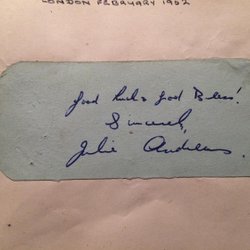 LONDON FEBRUARY 1952
Good luck & God Bless!
Sincerely,
Julie Andrews